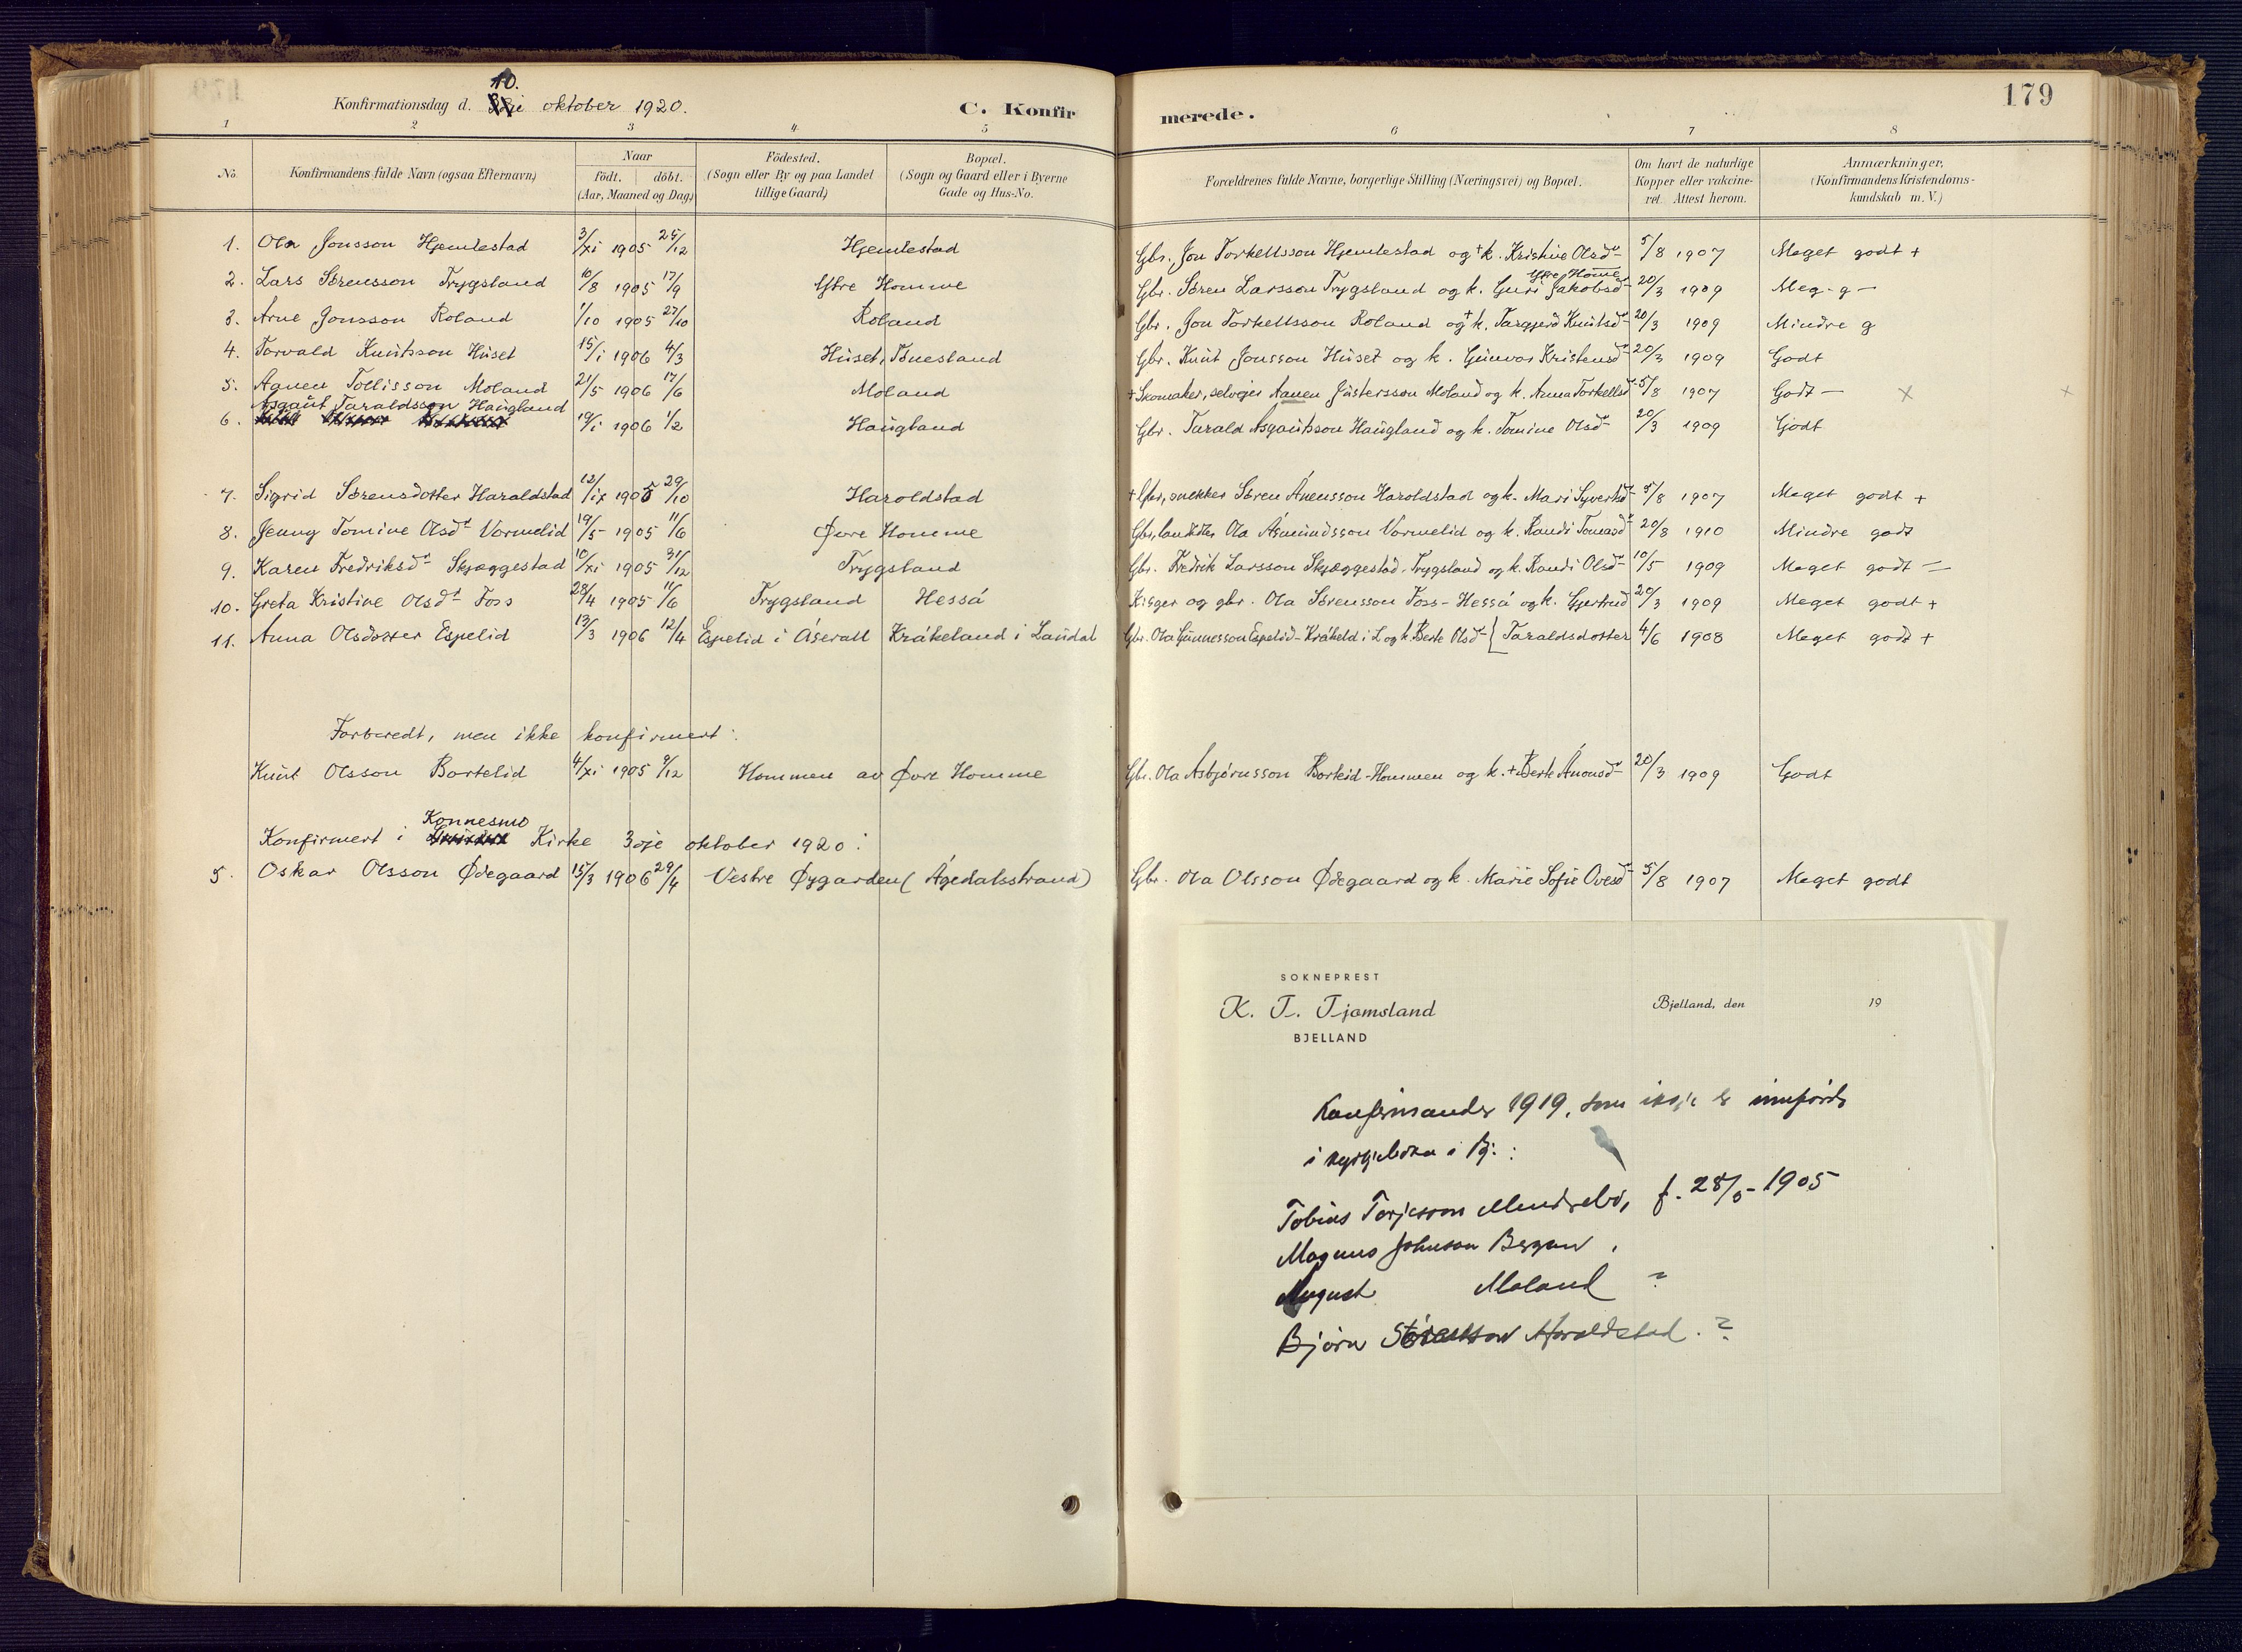 179
Konfirmationsdag d. 10. oktober 1920.
C. Konfirmerede.
1 2 3 4 5 6 7 8
No.
Konfirmandens fulde Navn (ogsaa Efternavn)
Naar
Födt. döbt.
(Aar, Maaned og Dag)
Födested.
(Sogn eller By og paa Landet
tillige Gaard)
Bopæl.
(Sogn og Gaard eller i Byerne
Gade og Hus-No.
Forældrenes fulde Navne, borgerlige Stilling (Næringsvei) og Bopæl.
Om havt de naturlige
Kopper eller vakcine-
ret. Attest herom.
Anmærkninger,
(Konfirmandens Kristendoms-
kundskab m. V.)
1. Ola Jonsson Hjemlestad 3/xi 1905 25/12 Hjemlestad Gbr. Jon Torkellsson Hjemlestad og + k. Kristine Olsdtr 5/8 1907 Meget godt +
Ytre Home
2. Lars Sørensson Trygsland 10/8 1905 17/9 Ytre Homme Gbr. Søren Larsson Trygsland og k. Guri Jakobsdtr 20/3 1909 Meg. g —
3. Arne Jonsson Roland 1/10 1905 27/10 Roland Gbr. Jon Torkellsson Roland og + k. Targjerd Knutsdtr 20/3 1909 Mindre g
4. Torvald Knutsson Huset 15/i 1906 4/3 Huset, Tonesland Gbr. Knut Jonsson Huset og k. Gunvor Kristensdtr 20/3 1909 Godt
5. Aanen Tollisson Moland 21/5 1906 17/6 Moland + Skomaker, selveier Aanen Justersson Moland og k. Anna Torkellsd 5/8 1907 Godt — x +
Asgaut Taraldsson Haugland
6. 19/i 1906 1/2 Haugland Gbr. Tarald Asgautsson Haugland og k. Tomine Olsdtr 20/3 1909 Godt
7. Sigrid Sørensdotter Haraldstad 12/ix 1905 29/10 Haroldstad + Gbr, snekker Søren Ånensson Haroldstad og k. Mari Syvertsd 5/8 1907 Meget godt +
8. Jenny Tomine Olsdt Vormelid 19/5 1905 11/6 Øvre Homme Gbr, Ola Åsmundsson Vormelid og k. Randi Tomasdtr 20/8 1910 Mindre godt
9. Karen Fredriksdtr Skjæggestad 10/xi 1905 31/12 Trygsland Gbr. Fredrik Larsson Skjæggestad-Trygsland og k. Randi Olsdtr 10/5 1909 Meget godt —
10. Greta Kristine Olsdt Foss 28/4 1905 11/6 Trygsland Hesså Kirger og gbr. Ola Sørensson Foss-Hesså og k. Gjertrud 20/3 1909 Meget godt +
11. Anna Olsdotter Espelid 13/3 1906 12/4 Espelid i Åserall Kråkeland i Laudal Gbr. Ola Gunnesson Espelid-Kråkeld i L og k. Berte Olsd [ Taraldsdotter 4/6 1908 Meget godt +
Forberedt, men ikke konfirmert:
Knut Olsson Bortelid 4/xi 1905 9/12 Hommen av Øvre Homme Gbr. Ola Asbjørnsson Borteid-Hommen og k. + Berte Ånonsdtr 20/3 1909 Godt
Konnesmo
Konfirmert i Kirke 3dje oktober 1920:
5. Oskar Olsson Ødegaard 15/3 1906 29/4 Vestre Øygarden (Ågedalsstrand) Gbr. Ola Olsson Ødegaard og k. Marie Sofie Ovesdtr 5/8 1907 Meget godt
SOKNEPREST
K. T. Tjomsland
BJELLAND
Bjelland, den 19
Konfirmander 1919, som ikkje er innførde
i kyrkjeboka i Bj.:
Tobias Torjesson f. 28/5-1905
Magnus Johnson Bergan
August Moland ?
Bjørn Haroldstad. ?